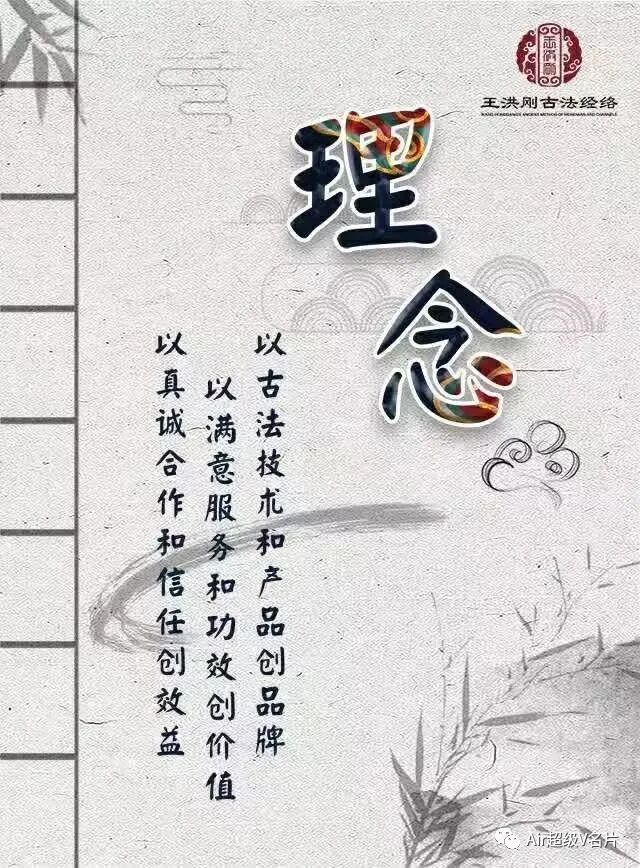 王洪刚古法经络
WANG HONGGANG'S ANCIENT METHOD OF MERIDIAN AND CHANNELS
理念
以古法技术和产品创品牌
以满意服务和功效创价值
以真诚合作和信任创效益
Air超级V名片